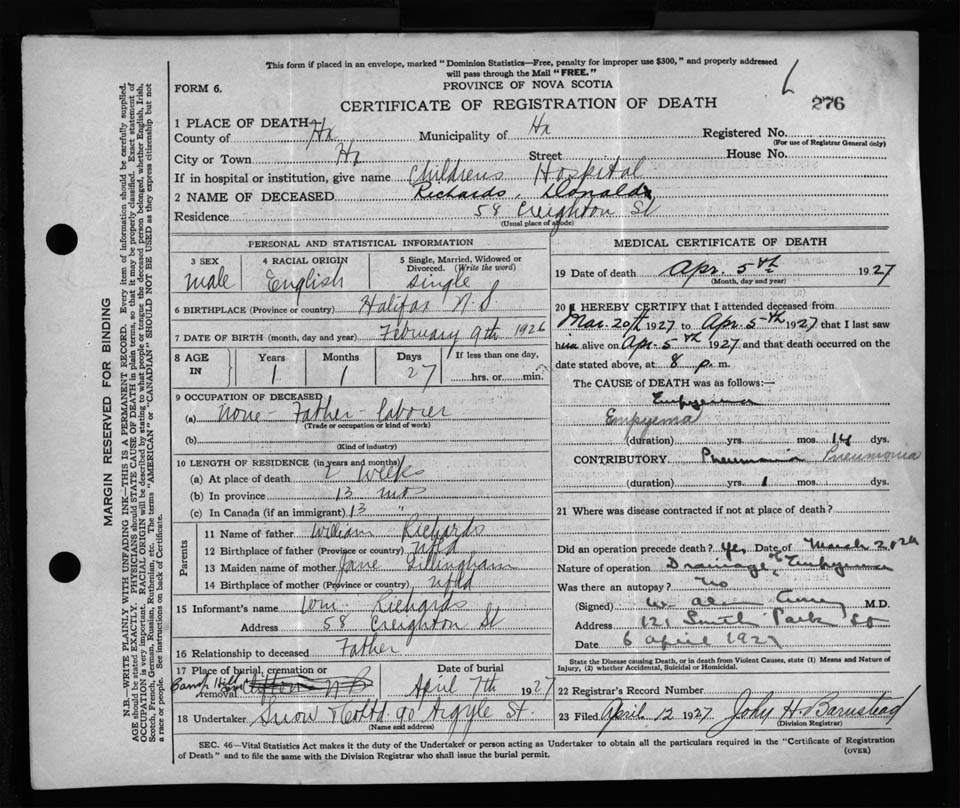 This form if placed in an envelope, marked "Dominion Statistics—Free, penalty for improper use $300," and properly addressed
will pass through the Mail "FREE."
FORM 6.
PROVINCE OF NOVA SCOTIA
276
CERTIFICATE OF REGISTRATION OF DEATH
1 PLACE OF DEATH—
County of Hx Municipality of Hx Registered No.
(For use of Registrar General only)
City or Town Hx Street House No.
If in hospital or institution, give name Childrens Hospital
2 NAME OF DECEASED Richards, Donald
Residence 58 Creighton St
(Usual place of abode)
PERSONAL AND STATISTICAL INFORMATION
3 SEX
male
4 RACIAL ORIGIN
English
5 Single, Married, Widowed or
Divorced. (Write the word)
Single
6 BIRTHPLACE (Province or country) Halifax N.S.
7 DATE OF BIRTH (month, day and year) February 9th 1926
8 AGE IN
Years Months Days If less than one day,
1 1 27 hrs. or min.
9 OCCUPATION OF DECEASED
(a) None - Father - laborer
(Trade or occupation or kind of work)
(b)
(Kind of industry)
10 LENGTH OF RESIDENCE (in years and months)
(a) At place of death 2 Weeks
(b) In province 13 mos
(c) In Canada (if an immigrant) 13 "
Parents
11 Name of father William Richards
12 Birthplace of father (Province or country) Nfld
13 Maiden name of mother Jane Dillingham
14 Birthplace of mother (Province or country) Nfld
15 Informant's name Wm. Richards
Address 58 Creighton St
16 Relationship to deceased Father
17 Place of burial, cremation or
removal Camp Hill
Date of burial
April 7th 1927
18 Undertaker Snow & Co Ltd 90 Argyle St.
(Name and address)
MEDICAL CERTIFICATE OF DEATH
19 Date of death Apr. 5th 1927
(Month, day and year)
20 I HEREBY CERTIFY that I attended deceased from
Mar. 20th 1927 to Apr. 5th 1927 that I last saw
him alive on Apr. 5th 1927 and that death occurred on the
date stated above, at 8 p. m.
The CAUSE of DEATH was as follows:—
Empyema
Empyema
(duration) yrs. mos. 14 dys.
CONTRIBUTORY Pneumonia Pneumonia
(duration) yrs. 1 mos. dys.
21 Where was disease contracted if not at place of death?
Did an operation precede death? Yes Date of March 20th
Nature of operation Drainage of Empyema
Was there an autopsy? No
(Signed) W. M.D.
Address 121 South Park St
Date 6 April 1927
State the Disease causing Death, or in death from Violent Causes, state (1) Means and Nature of
Injury, (2) whether Accidental, Suicidal or Homicidal.
22 Registrar's Record Number
23 Filed April 12 1927 John H Barnstead
(Division Registrar)
SEC. 46—Vital Statistics Act makes it the duty of the Undertaker or person acting as Undertaker to obtain all the particulars required in the "Certificate of Registration
of Death" and to file the same with the Division Registrar who shall issue the burial permit.
(OVER)
MARGIN RESERVED FOR BINDING
N.B.—WRITE PLAINLY WITH UNFADING INK—THIS IS A PERMANENT RECORD. Every item of information should be carefully supplied.
AGE should be stated EXACTLY. PHYSICIANS should STATE CAUSE OF DEATH in plain terms, so that it may be properly classified. Exact statement of
OCCUPATION is very important. RACIAL ORIGIN will be described by stating to what people or tongue the deceased person belonged, whether English, Irish,
Scotch, French, German, Russian, Ruthenian, etc. The terms "AMERICAN" or "CANADIAN" SHOULD NOT BE USED as they express citizenship but not
a race or people. See instructions on back of Certificate.